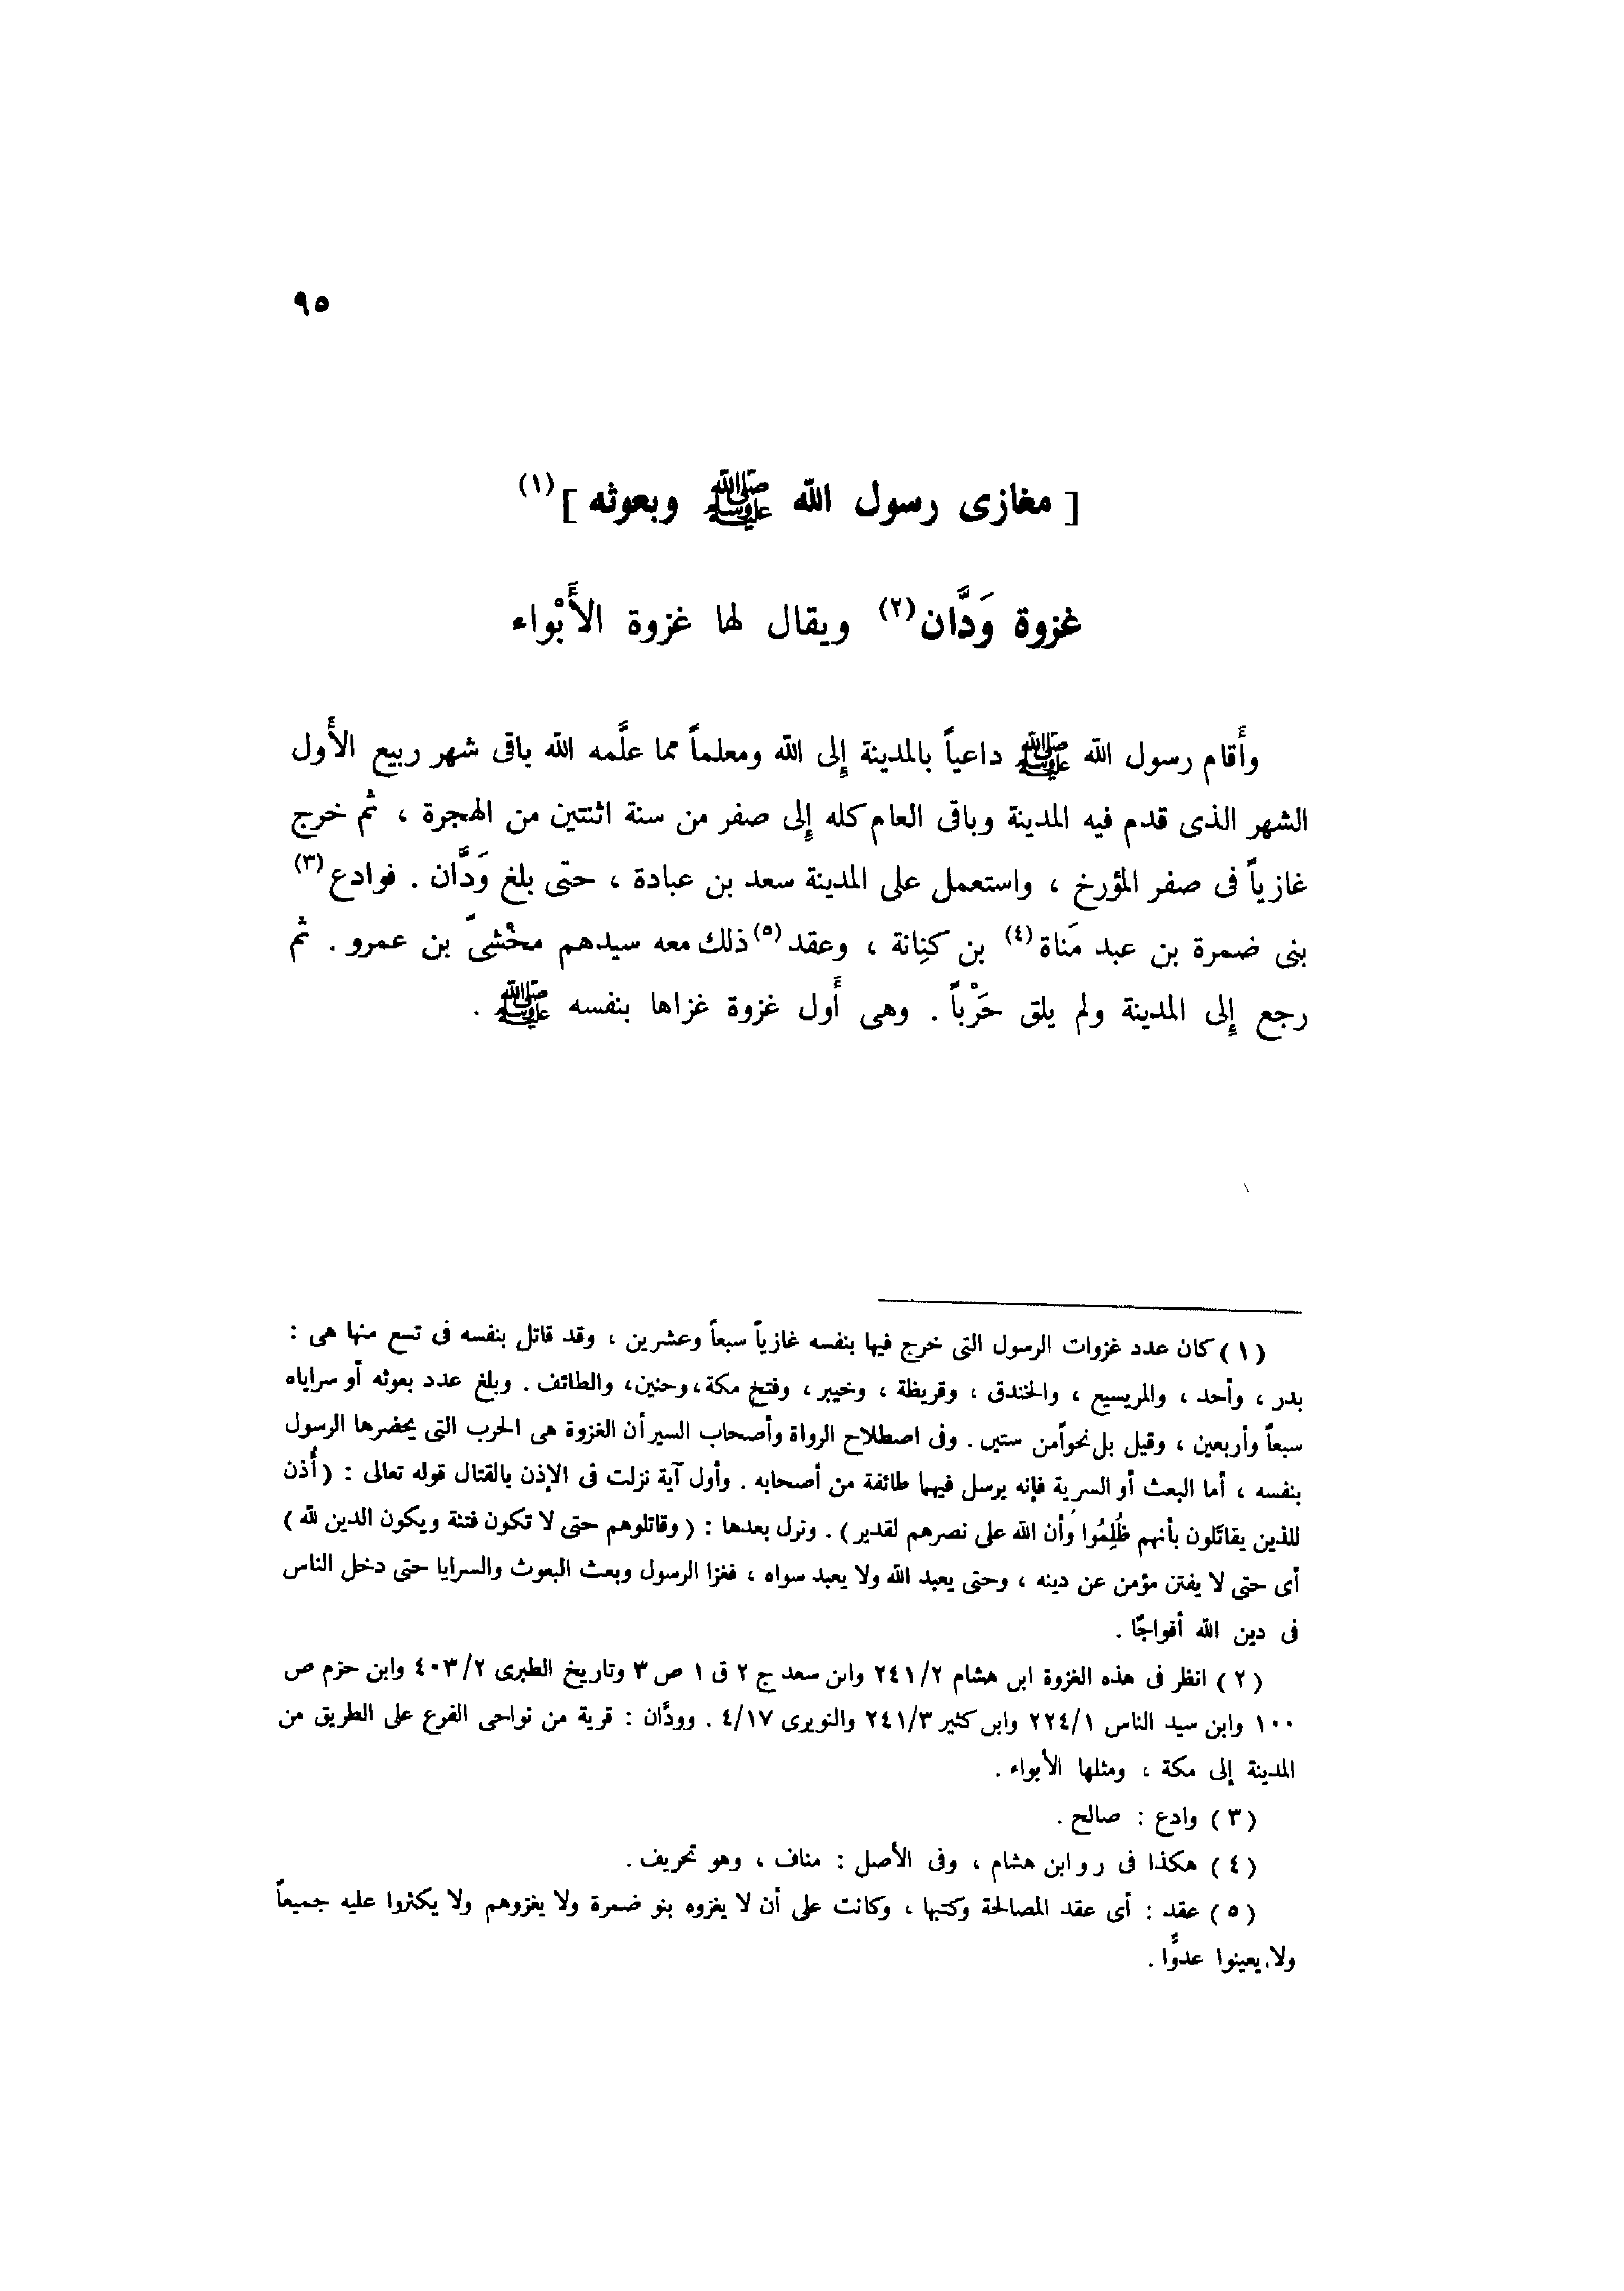 ٩٥
[ مغازى رسول الله ﷺ وبعوثه ](١)
غزوة وَدَّان(٢) ويقال لها غزوة الأَبْواء
وأَقام رسول الله ﷺ داعياً بالمدينة إِلى الله ومعلماً مما علَّمه الله باقى شهر ربيع الأَول
الشهر الذى قدم فيه المدينة وباقى العام كله إِلى صفر من سنة اثنتين من الهجرة ، ثم خرج
غازياً فى صفر المؤرخ ، واستعمل على المدينة سعد بن عبادة ، حتى بلغ وَدَّان . فوادع(٣)
بنى ضمرة بن عبد مَناة(٤) بن كنِانة ، وعقد(٥) ذلك معه سيدهم مخْشىّ بن عمرو . ثم
رجع إِلى المدينة ولم يلق حَرْباً . وهى أَول غزوة غزاها بنفسه ﷺ .
(١) كان عدد غزوات الرسول التى خرج فيها بنفسه غازياً سبعاً وعشرين ، وقد قاتل بنفسه فى تسع منها هى :
بدر ، وأحد ، والمريسيع ، والخندق ، وقريظة ، وخيبر ، وفتح مكة ، وحنين، والطائف . وبلغ عدد بعوثه أو سراياه
سبعاً وأربعين ، وقيل بل نحواً من ستين . وفى اصطلاح الرواة وأصحاب السير أن الغزوة هى الحرب التى يحضرها الرسول
بنفسه ، أما البعث أو السرية فإنه يرسل فيهما طائفة من أصحابه . وأول آية نزلت فى الإذن بالقتال قوله تعالى : ( أُذن
للذين يقاتَلون بأنهم ظُلِمُوا وأن الله على نصرهم لقدير ) . ونزل بعدها : ( وقاتلوهم حتى لا تكون فتنة ويكون الدين لله )
أى حتى لا يفتن مؤمن عن دينه ، وحتى يعبد الله ولا يعبد سواه ، فغزا الرسول وبعث البعوث والسرايا حتى دخل الناس
فى دين الله أفواجًا .
(٢) انظر فى هذه الغزوة ابن هشام ٢٤١/٢ وابن سعد ج ٢ ق ١ ص ٣ وتاريخ الطبرى ٤٠٣/٢ وابن حزم ص
١٠٠ وابن سيد الناس ٢٢٤/١ وابن كثير ٢٤١/٣ والنويرى ٤/١٧ . وودَّان : قرية من نواحى الفرع على الطريق من
المدينة إلى مكة ، ومثلها الأبواء .
(٣) وادع : صالح .
(٤) هكذا فى ر و ابن هشام ، وفى الأصل : مناف ، وهو تحريف .
(٥) عقد : أى عقد المصالحة وكتبها ، وكانت على أن لا يغزوه بنو ضمرة ولا يغزوهم ولا يكثروا عليه جميعاً
ولا يعينوا عدوًّا .